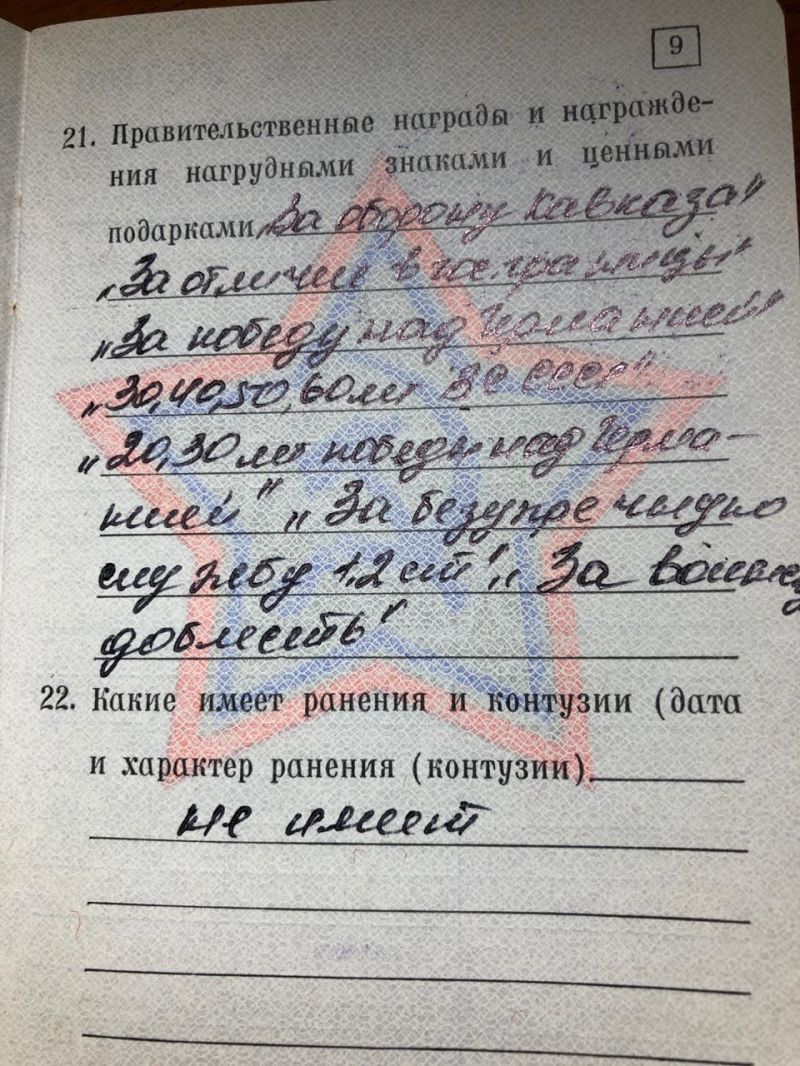 9
21. Правительственные награды и награжде-
ния нагрудными знаками и ценными
подарками „За оборону Кавказа"
„За отличие в гос. границы"
„За победу над Германией"
„30, 40, 50, 60 лет ВС СССР"
„20, 30 лет победы над Герма-
нией" „За безупречную
службу 1,2 ст", „За воинскую
доблесть"
22. Какие имеет ранения и контузии (дата
и характер ранения (контузии)
не имеет